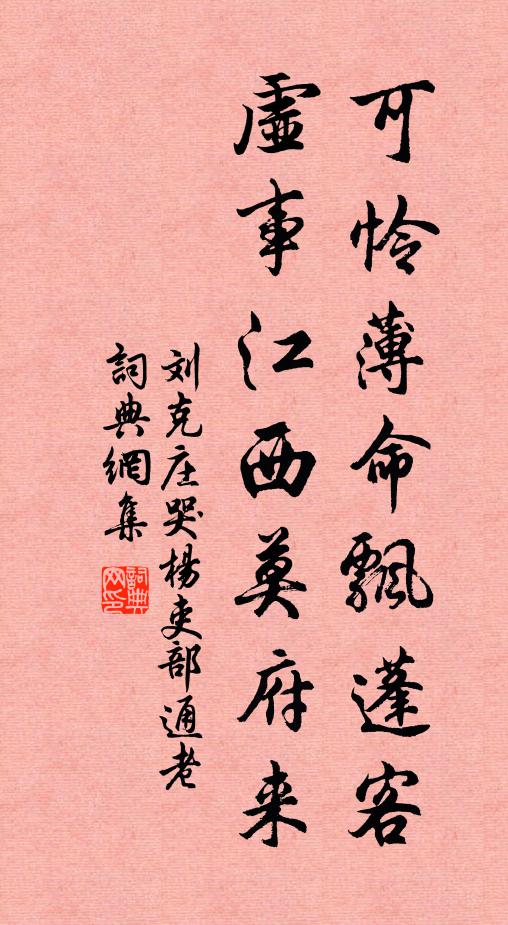 可怜薄命飘蓬客
虚事江西莫府来
刘克庄哭杨吏部通老
詞典網集
詞典网印